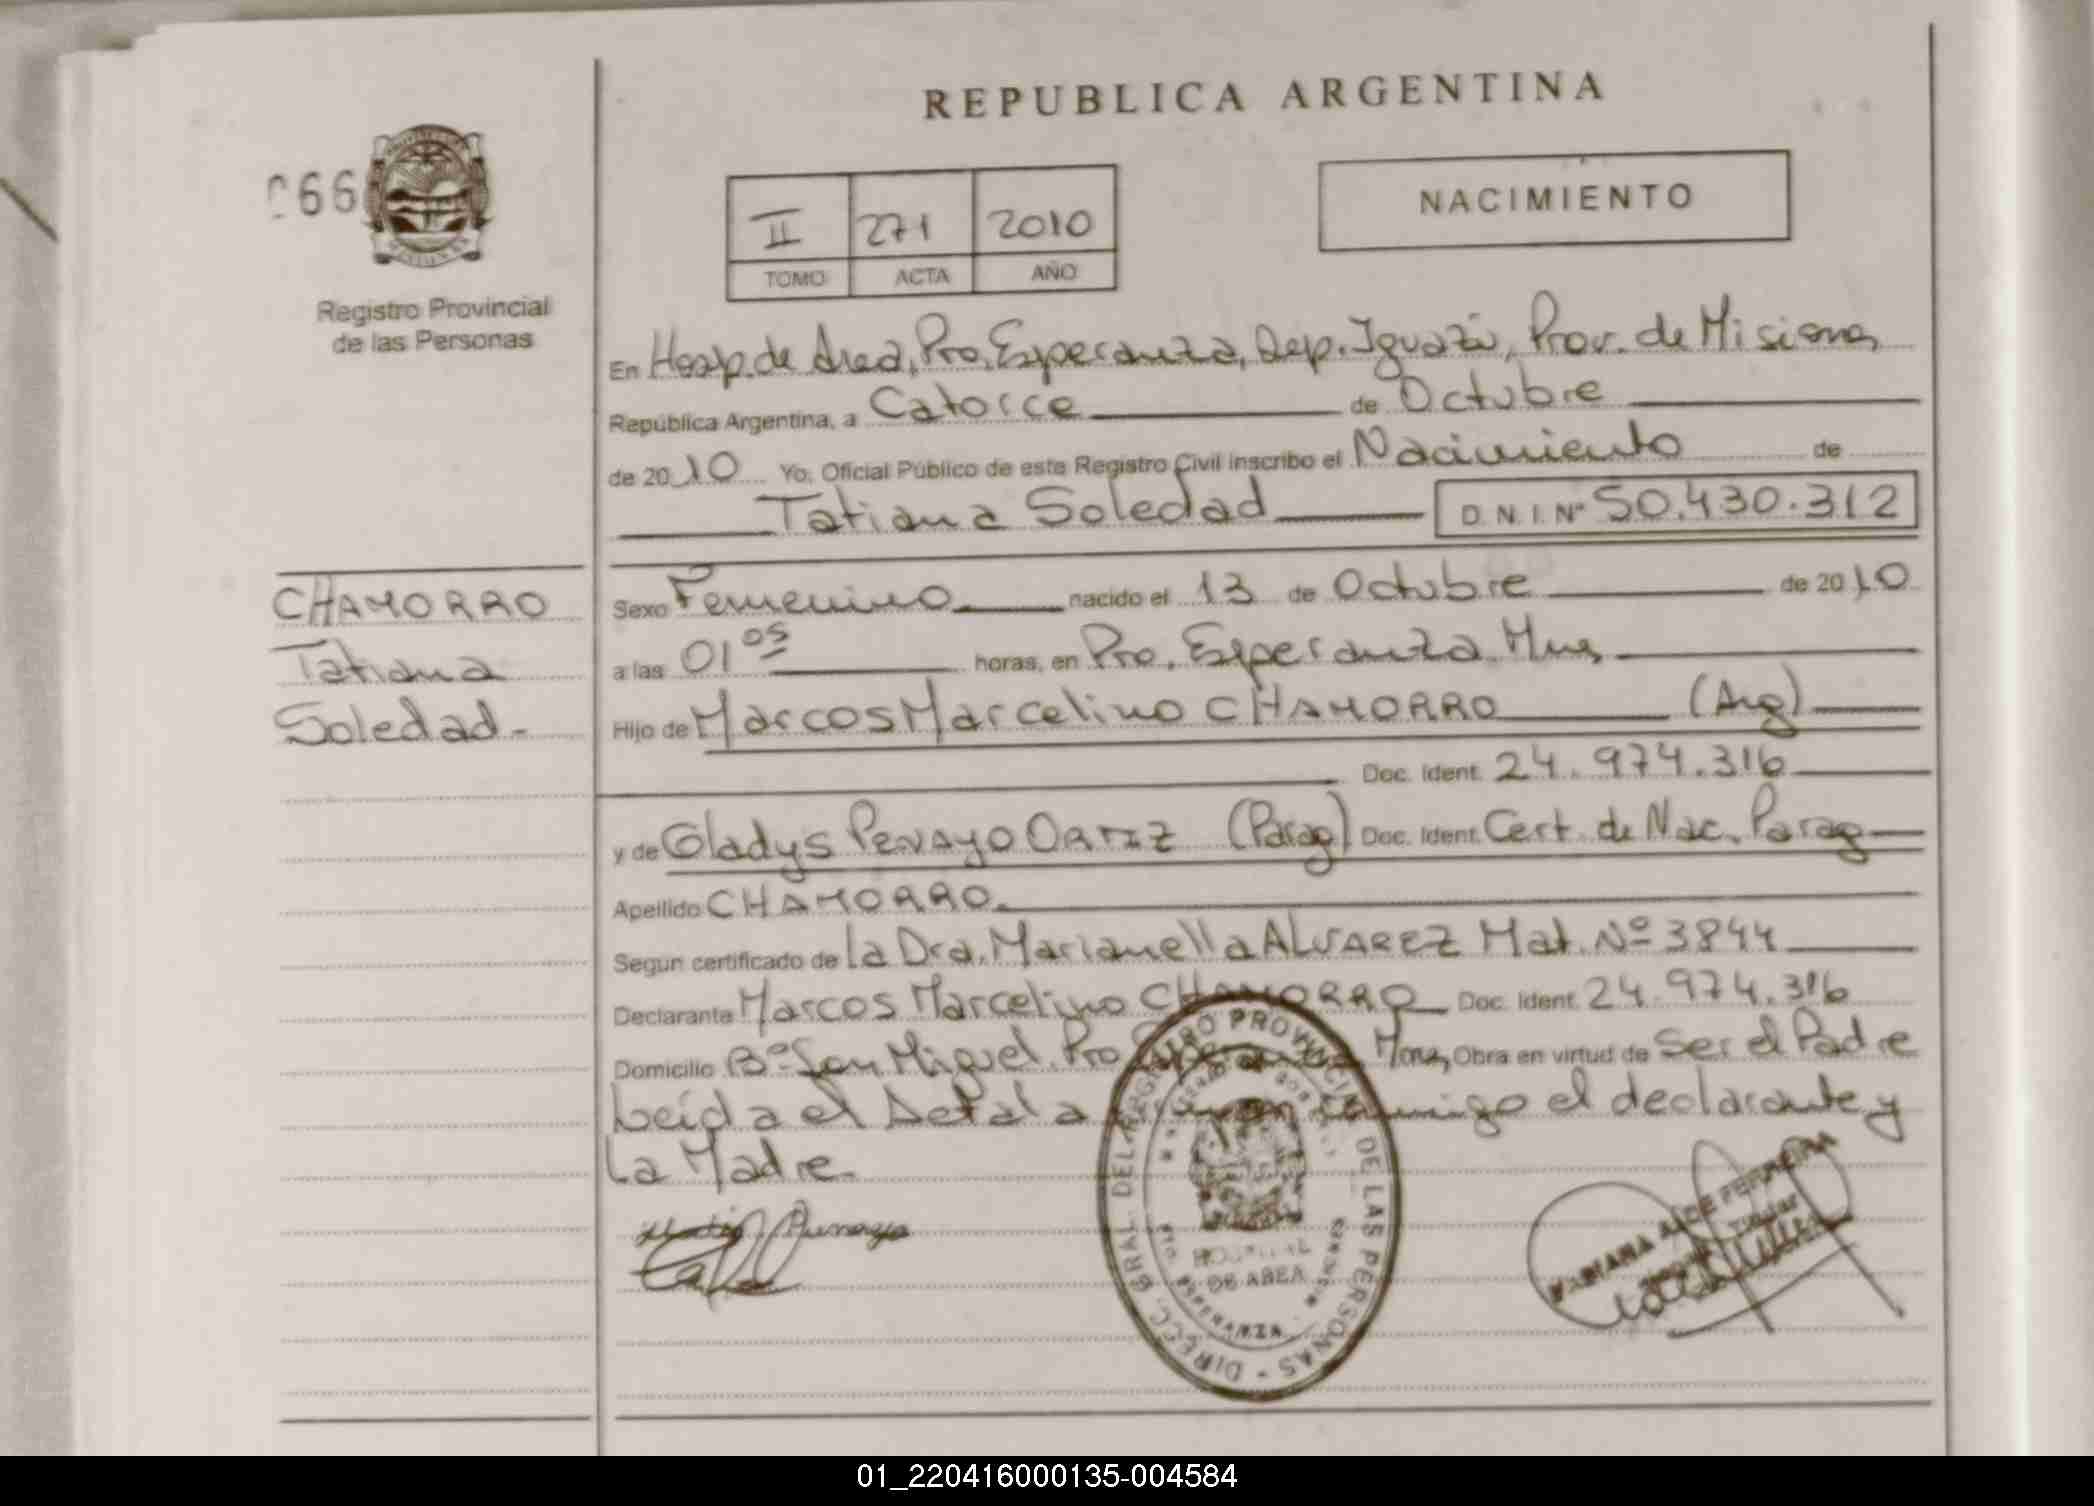 REPUBLICA ARGENTINA
066
NACIMIENTO
II 271 2010
TOMO ACTA AÑO
Registro Provincial
de las Personas
En Hosp. de Area, Pto. Esperanza, Dep. Iguazú, Prov. de Misiones
República Argentina, a Catorce de Octubre
de 2010 Yo, Oficial Público de este Registro Civil inscribo el Nacimiento de
Tatiana Soledad D.N.I. Nº 50.430.312
CHAMORRO
Tatiana
Soledad-
Sexo Femenino nacido el 13 de Octubre de 2010
a las 01 05 horas, en Pto. Esperanza Mnes
Hijo de Marcos Marcelino CHAMORRO (Arg)
Doc. Ident. 24.974.316
y de Gladys PENAYO ORTIZ (Parag) Doc. Ident. Cert. de Nac. Parag
Apellido CHAMORRO.
Segun certificado de la Dra. Marianella ALVAREZ Mat. Nº 3844
Declarante Marcos Marcelino CHAMORRO Doc. Ident. 24.974.316
Domicilio Bº San Miguel. Pto Esperanza Mnes, Obra en virtud de Ser el Padre
Leída el Acta la firman conmigo el declarante y
La Madre.
DIRECC. GRAL. DEL REGISTRO PROVINCIAL DE LAS PERSONAS
HOSPITAL
DE AREA
01_220416000135-004584